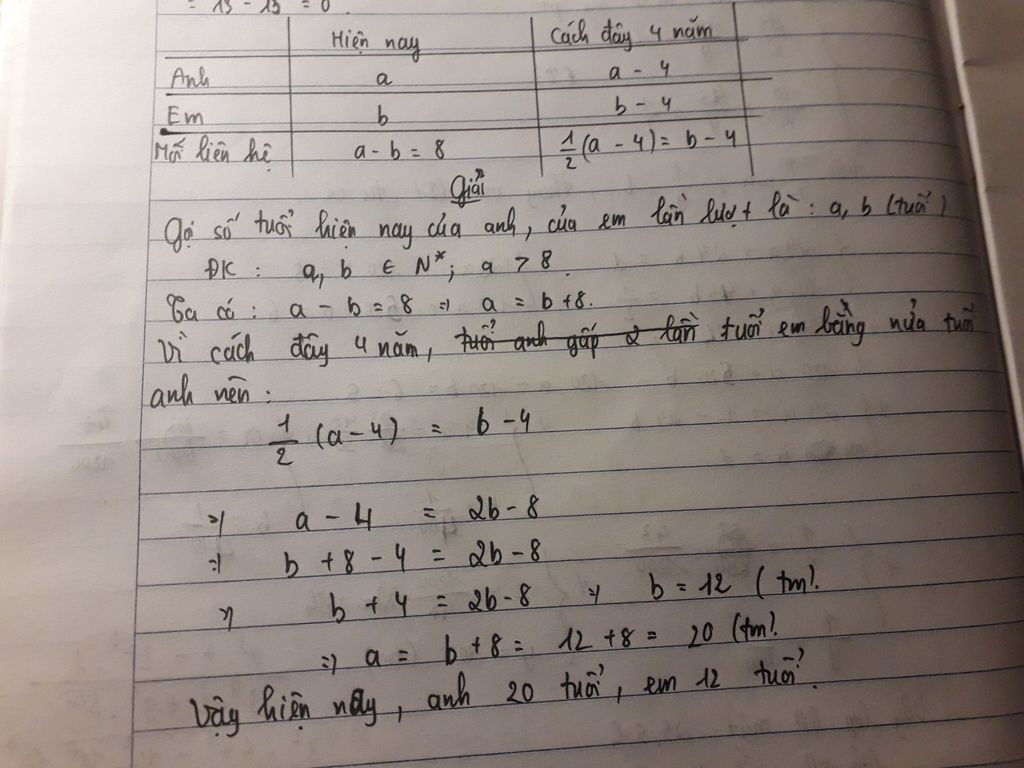 = 13 - 13 = 0.
Hiện nay Cách đây 4 năm
Anh a a - 4
Em b b - 4
Mối liên hệ a - b = 8 1/2 (a - 4) = b - 4
Giải
Gọi số tuổi hiện nay của anh, của em lần lượt là : a, b (tuổi)
ĐK : a, b ∈ N*; a > 8.
Ta có : a - b = 8 => a = b + 8.
Vì cách đây 4 năm, tuổi anh gấp 2 lần tuổi em bằng nửa tuổi
anh nên :
1/2 (a - 4) = b - 4
=> a - 4 = 2b - 8
=> b + 8 - 4 = 2b - 8
=> b + 4 = 2b - 8 => b = 12 (tm).
=> a = b + 8 = 12 + 8 = 20 (tm).
Vậy hiện nay, anh 20 tuổi, em 12 tuổi.